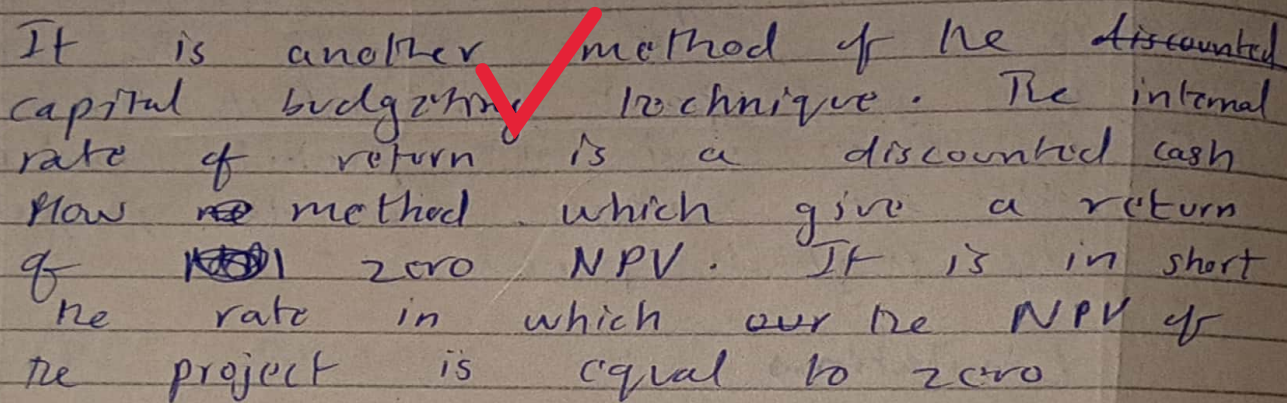 It is another method of the discounted
capital budgeting technique. The internal
rate of return is a discounted cash
flow method which give a return
of zero NPV. It is in short
the rate in which our the NPV of
the project is equal to zero